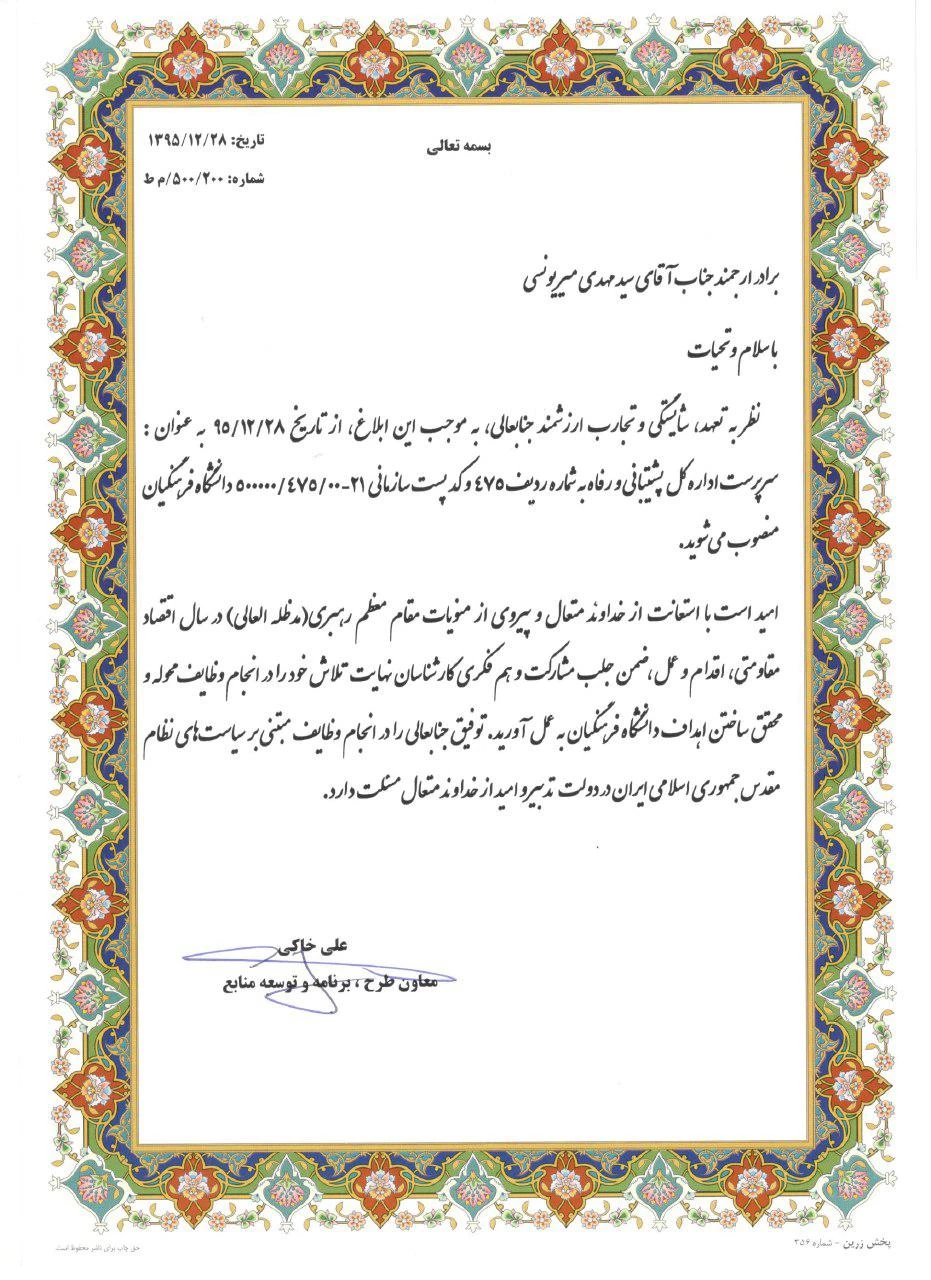 بسمه تعالی
تاریخ: ۱۳۹۵/۱۲/۲۸
شماره: ۵۰۰/۲۰۰/م ط
برادر ارجمند جناب آقای سید مهدی میریونسی
با سلام و تحیات
نظر به تعهد، شایستگی و تجارب ارزشمند جنابعالی، به موجب این ابلاغ، از تاریخ ۹۵/۱۲/۲۸ به عنوان :
سرپرست اداره کل پشتیبانی و رفاه به شماره ردیف ۴۷۵ و کد پست سازمانی ۲۱-۵۰۰۰۰۰/۴۷۵/۰۰ دانشگاه فرهنگیان
منصوب می شوید.
امید است با استعانت از خداوند متعال و پیروی از منویات مقام معظم رهبری(مدظله العالی) در سال اقتصاد
مقاومتی، اقدام و عمل، ضمن جلب مشارکت و هم فکری کارشناسان نهایت تلاش خود را در انجام وظایف محوله و
محقق ساختن اهداف دانشگاه فرهنگیان به عمل آورید. توفیق جنابعالی را در انجام وظایف مبتنی بر سیاست های نظام
مقدس جمهوری اسلامی ایران در دولت تدبیر و امید از خداوند متعال مسئلت دارد.
علی خاکی
معاون طرح ، برنامه و توسعه منابع
پخش زرین - شماره ۳۵۶
حق چاپ برای ناشر محفوظ است